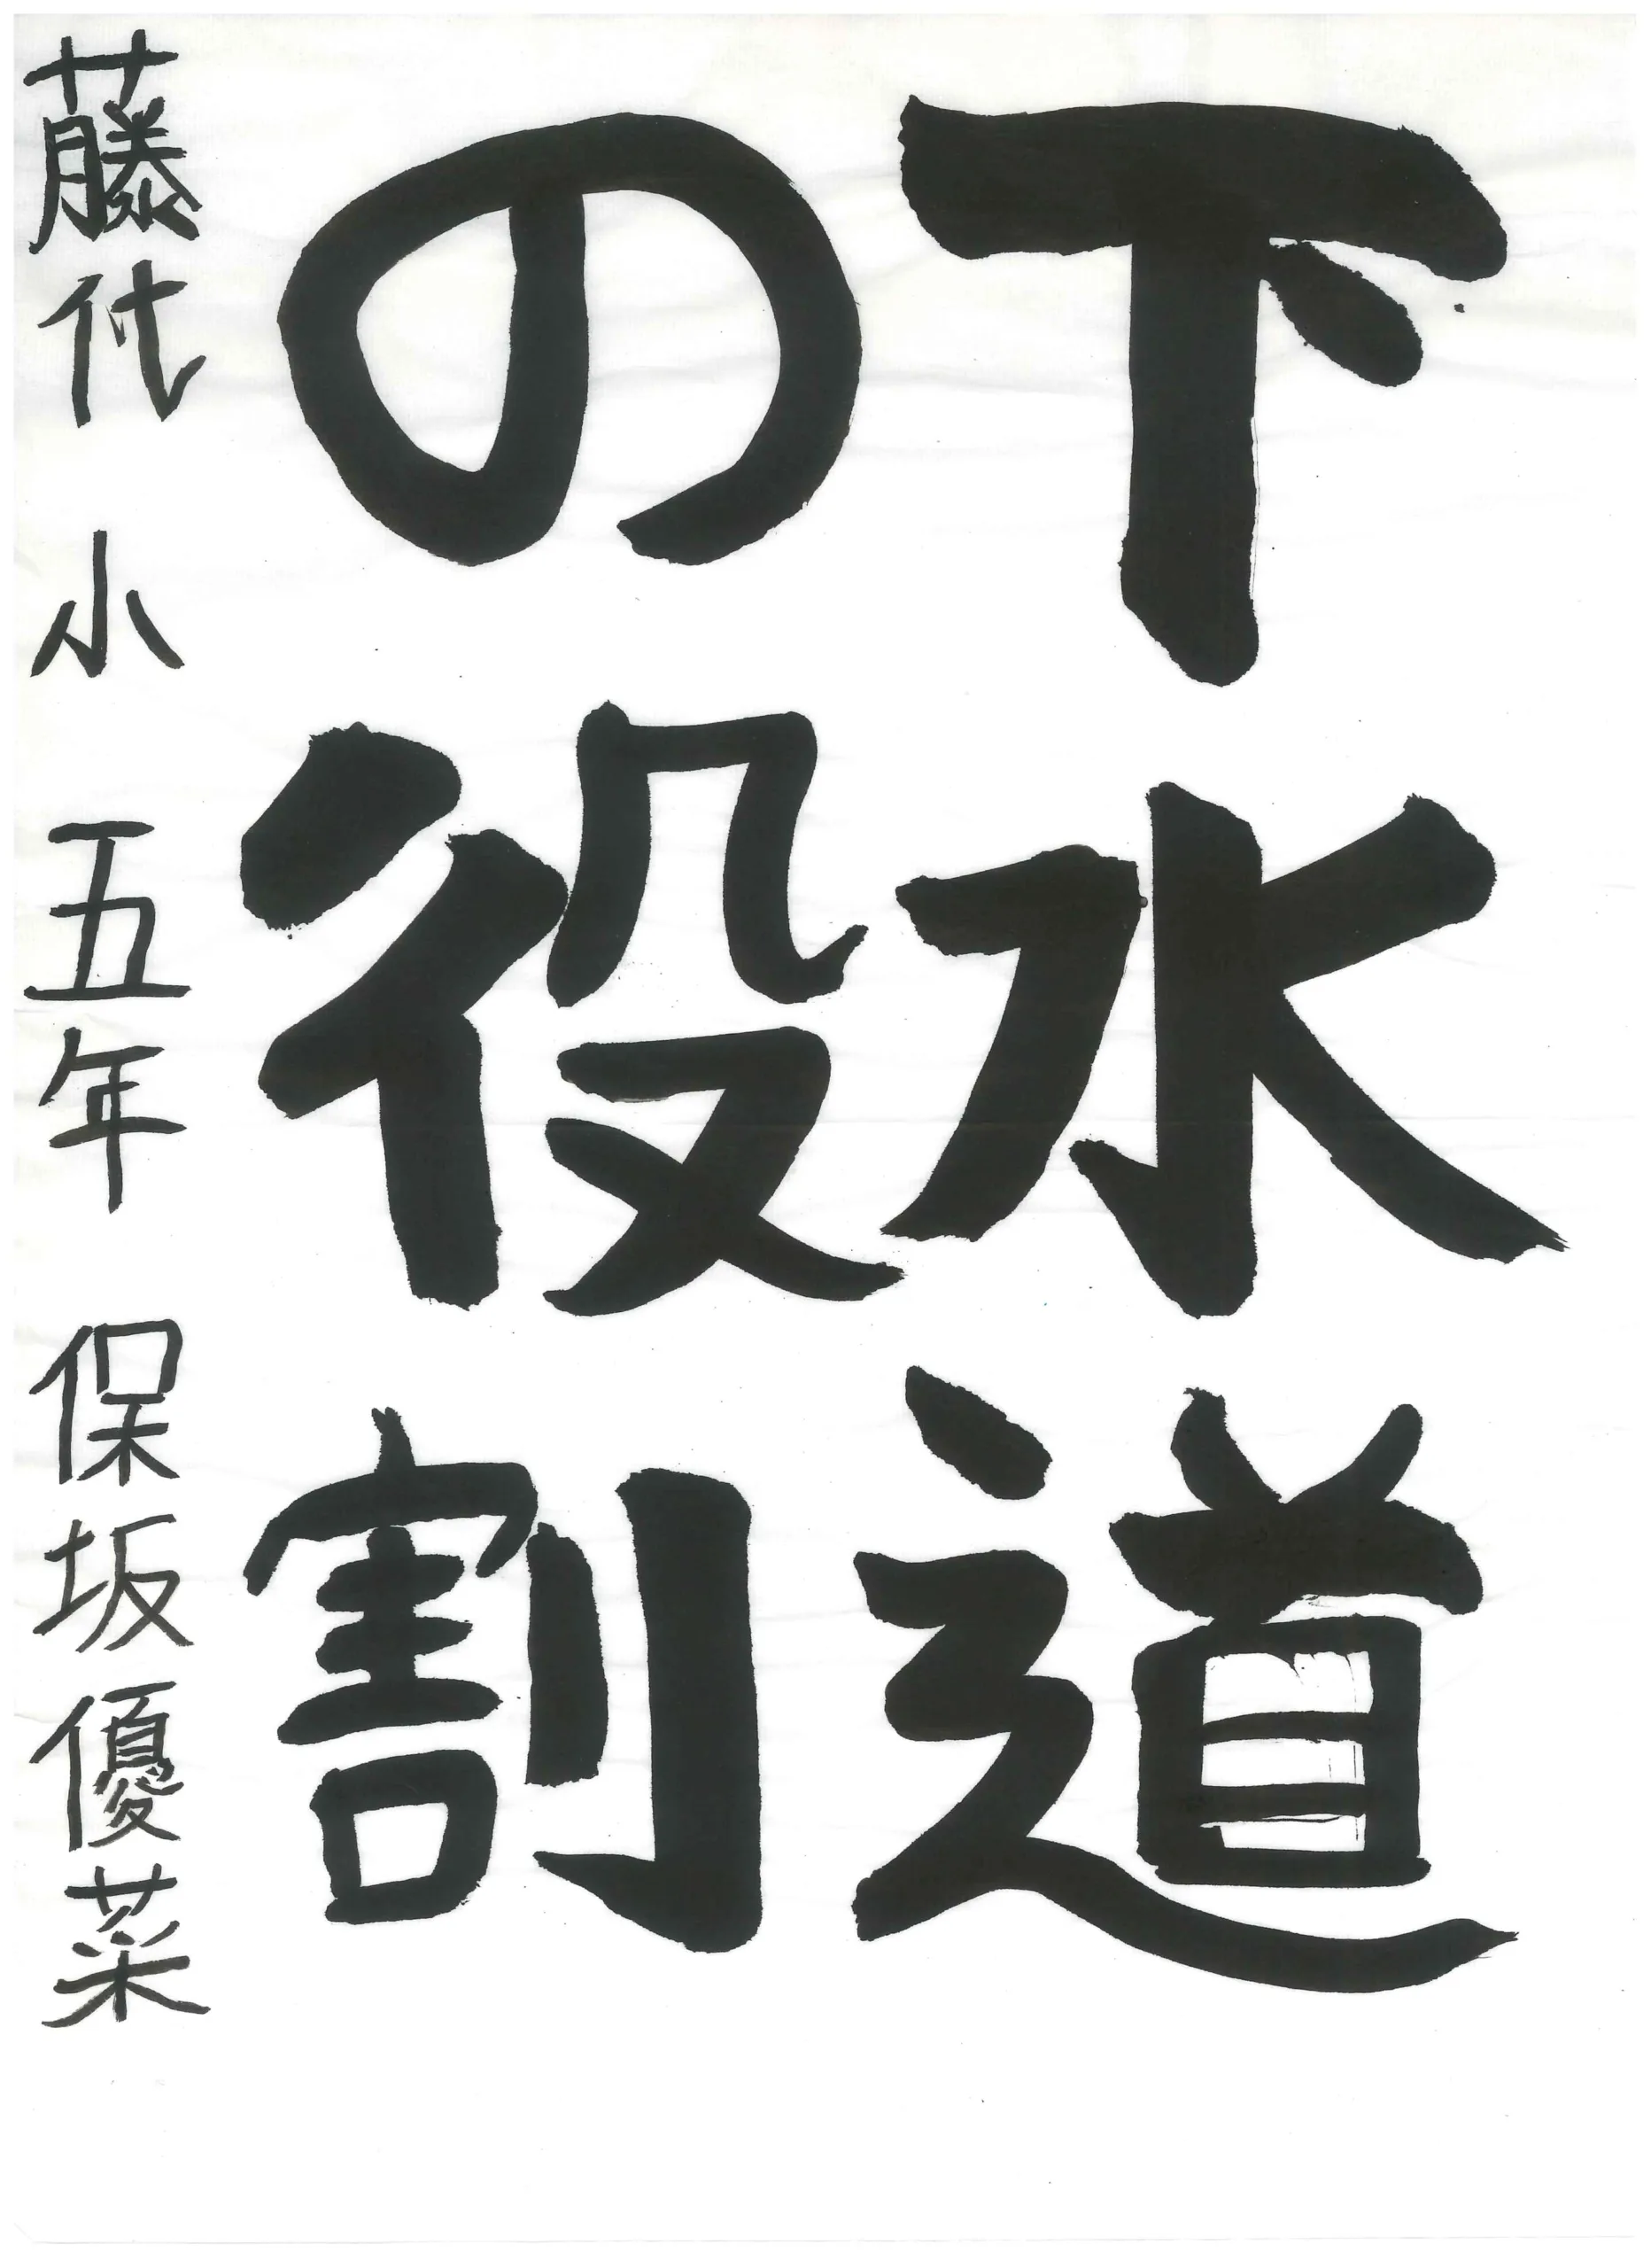 下水道
の役割
藤代小 五年 保坂優菜